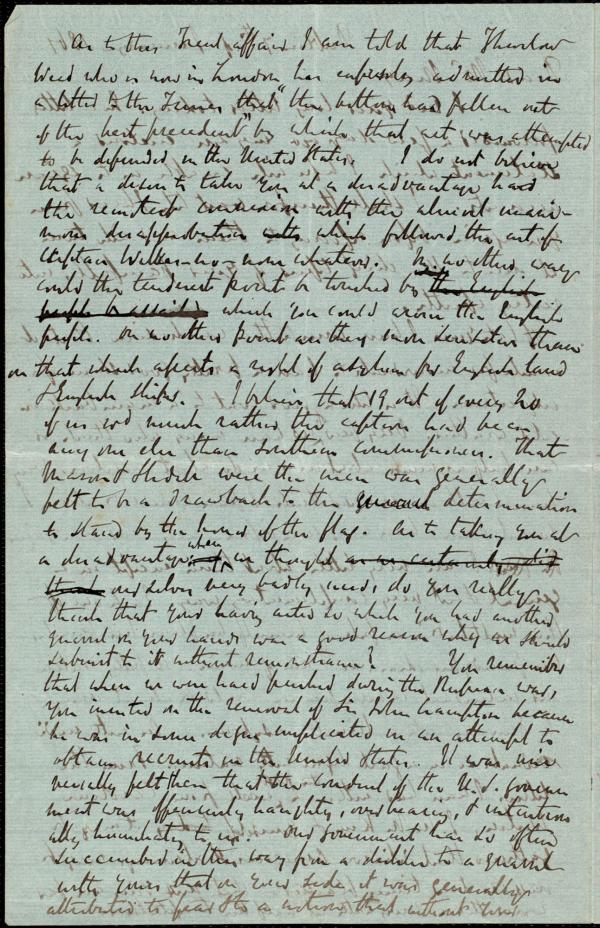 As to this Trent affair I am told that Thurlow
Weed who is now in London has expressly admitted in
a letter to the Times that "the bottom had fallen out
of the best precedent" by which that act was attempted
to be defended in the United States. I do not believe
that a desire to take you at a disadvantage had
the remotest connexion with the almost unani-
mous disapprobation with which followed the act of
Captain Wilkes - no - none whatever. In no other way
could the tenderest point be touched by the English
people be assailed which you could arouse the English
people. On no other point are they more sensitive than
on that which affects a right of asylum for English land
& English ships. I believe that 19 out of every 20
of us wd much rather the captives had been
any one else than Southern Commissioners. That
Mason & Slidell were the men was generally
felt to be a drawback to the general determination
to stand by the honor of the flag. As to taking you at
a disadvantage when we thought as we certainly did
think ourselves very badly used, do you really
think that your having acted so while you had another
quarrel on your hands was a good reason why we should
submit to it without remonstrance? You remember
that when we were hard pushed during the Russian war,
you insisted on the removal of Sir John Crampton because
he was in some degree implicated in an attempt to
obtain recruits in the United States. It was uni-
versally felt then that the conduct of the U.S. govern
ment was offensively haughty, overbearing, & intention
ally humiliating to us. Our government has so often
succumbed in this way from a dislike to a quarrel
with yours that on your side it was generally
attributed to fear & to a notion that without your